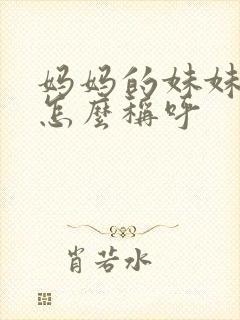 妈妈的妹妹
怎麼稱呼
肖若水